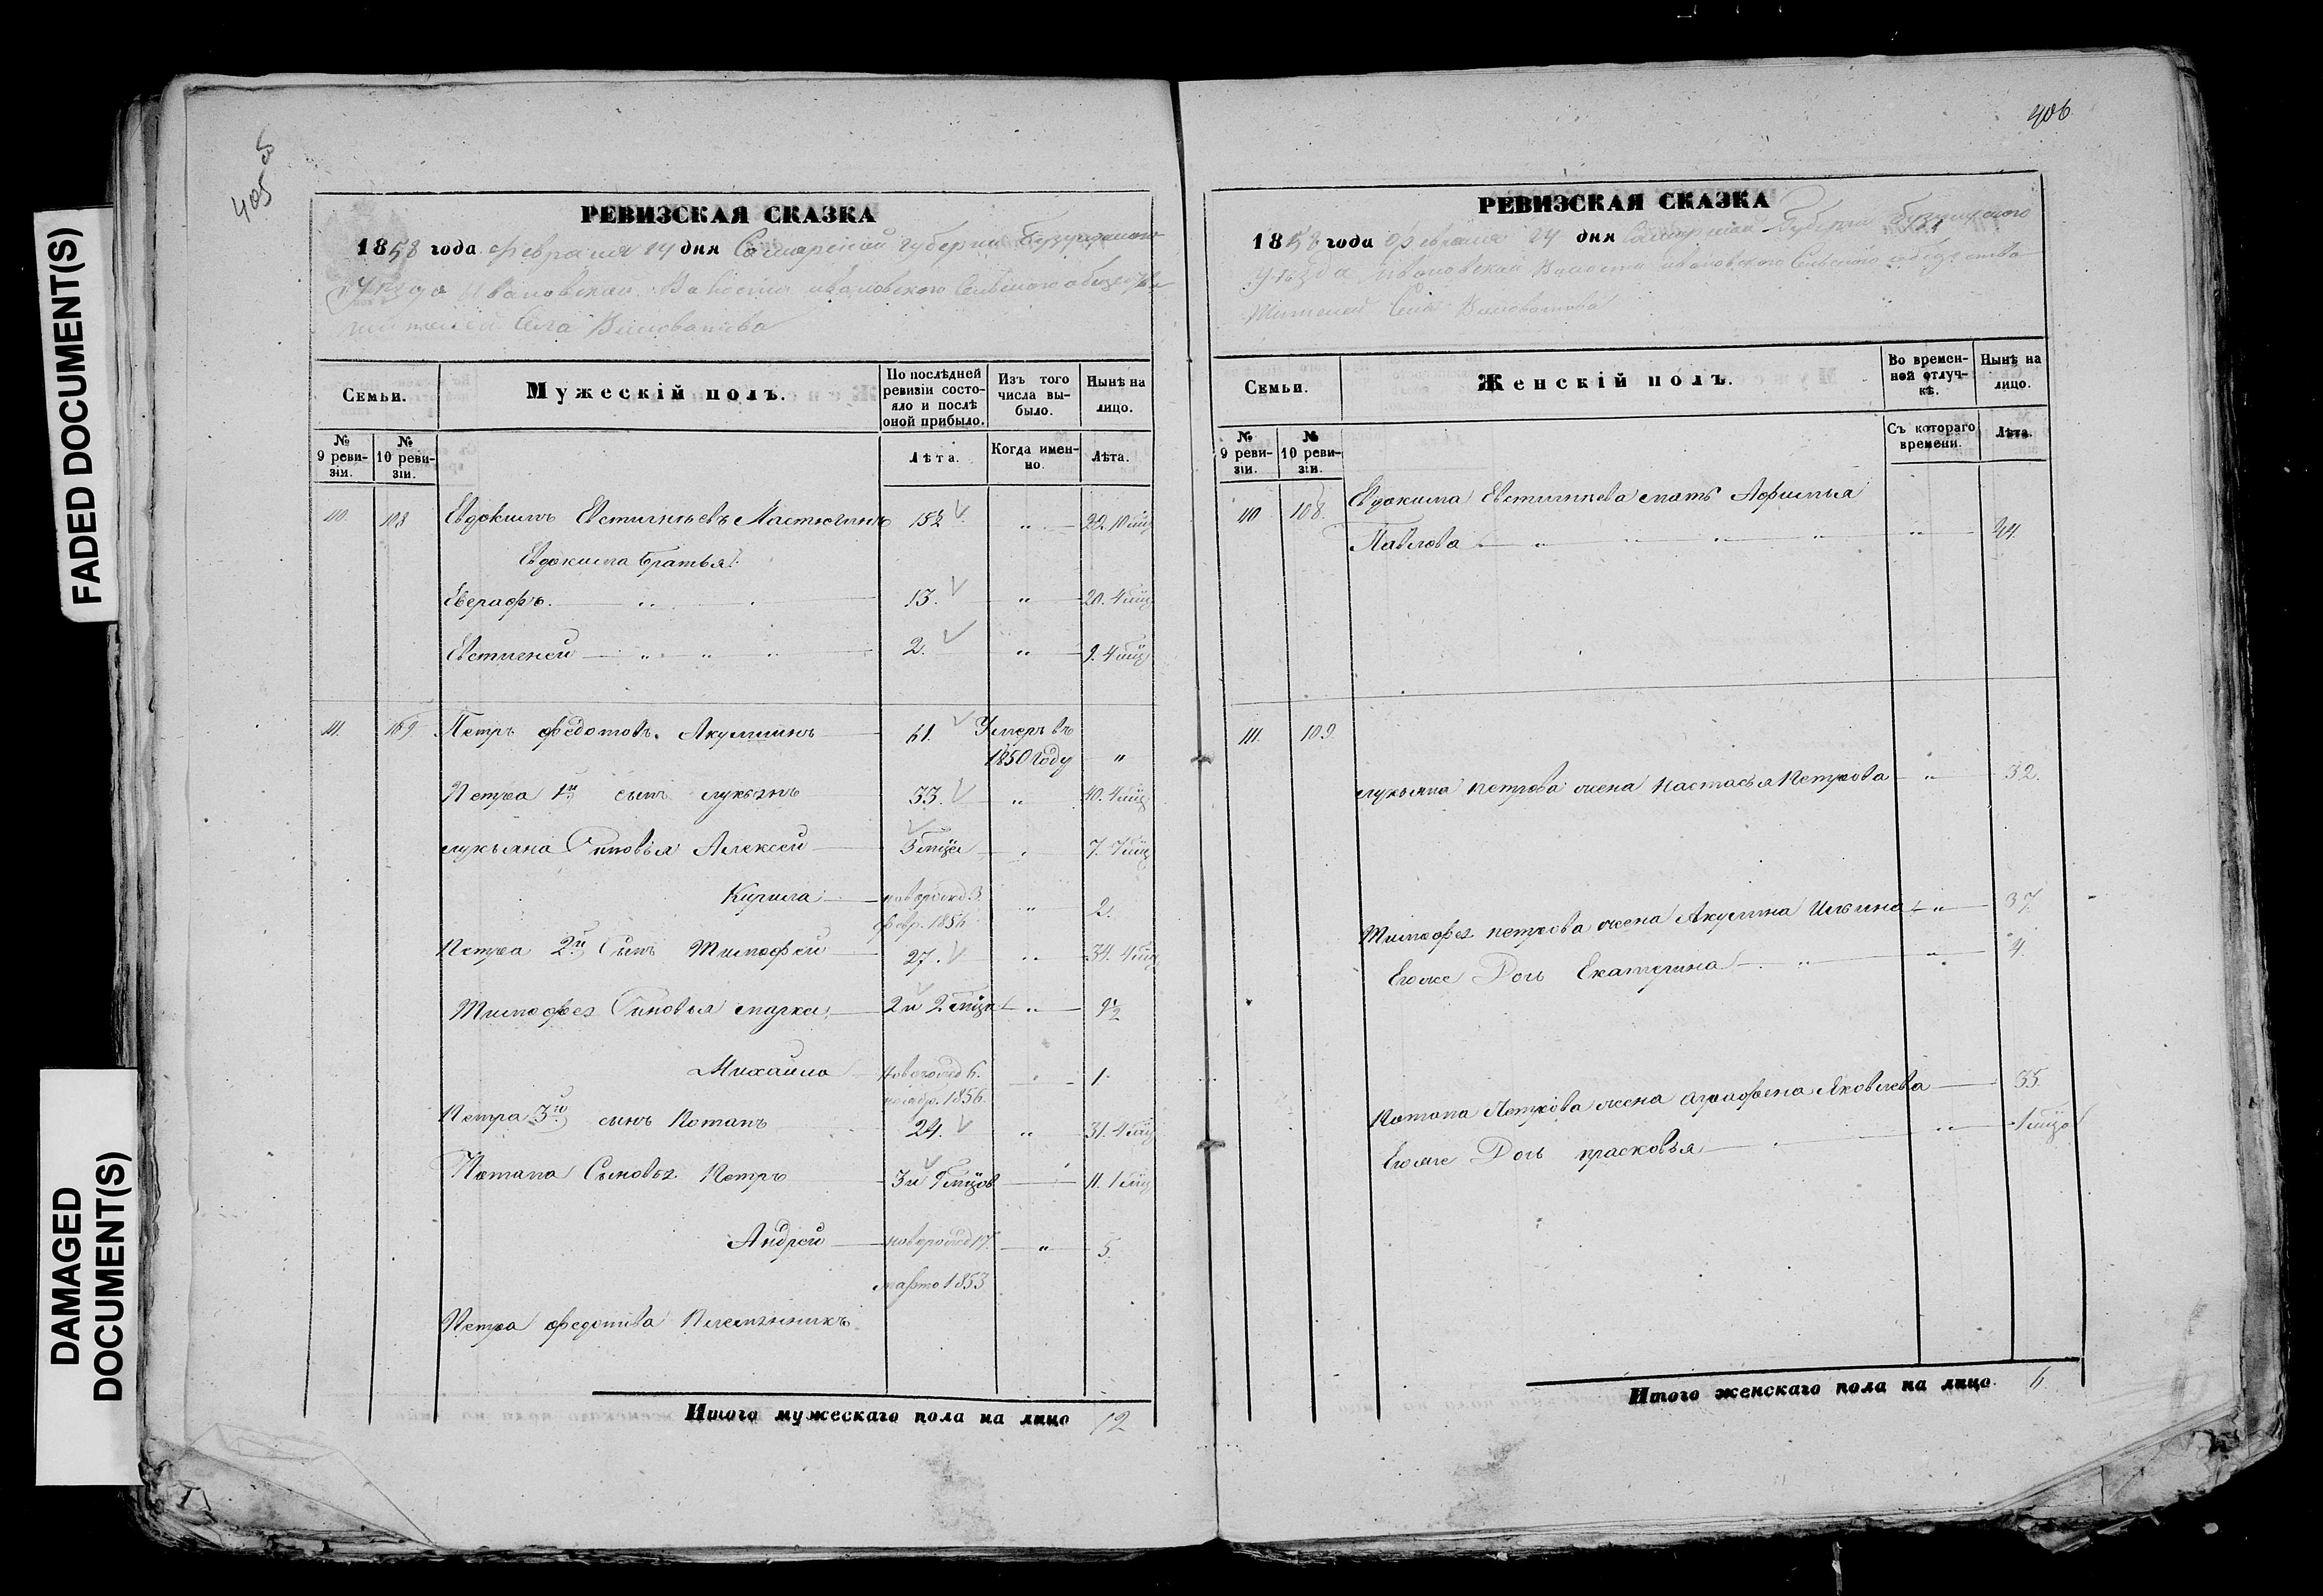 FADED DOCUMENT(S)
DAMAGED DOCUMENT(S)
405
РЕВИЗСКАЯ СКАЗКА
1858 года февраля 14 дня Самарской губернии Бузулукскаго
уезда Ивановской Волости ивановского Сельского общества
жителей Села Виловатова
Семьи.
Мужескій полъ.
По послѣдней ревизіи состояло и послѣ оной прибыло.
Изъ того числа выбыло.
Нынѣ на лицо.
№ 9 ревизіи.
№ 10 ревизіи.
Лѣта.
Когда именно.
Лѣта.
110 108 Евдокимъ Евстигнѣевъ Мастюгинъ 15½ „ 22. 10 мѣц
Евдокима братья:
Евграфъ. 13. „ 20. 4 мѣц
Евстигней 2. „ 9. 4 мѣц
111. 109 Петръ федотовъ Акулининъ 61. Умеръ въ
1850 году „
Петра 1й сынъ лукьянъ 33. „ 40. 4 мѣц
лукьяна Сыновья Алексей 3 мѣца 7. 7 мѣц
Кирила новорожд 3.
февр. 1856 „ 2.
Петра 2й Сынъ Тимофей 27. „ 34. 4 мѣц
Тимофея Сыновья марка 2 и 2 мѣца „ 9½
Михайло Новорожд 6.
ноябр. 1856. 1.
Петра 3й сынъ Потапъ 24. „ 31. 4 мѣц
Потапа Сыновья Петръ 3 и 9 мѣцов 11. 1 мѣц
Андрей новорожд 17. „ 5.
марта 1853
Петра федотова Племянникъ
Итого мужескаго пола на лицо 12
406
РЕВИЗСКАЯ СКАЗКА
1858 года февраля 14 дня Самарской Губерни Бузулукского
уезда ивановской Волости ивановского Сельского общества
жителей Села Виловатова
Семьи.
Женскій полъ.
Во временной отлучкѣ.
Нынѣ на лицо.
№ 9 ревизіи.
№ 10 ревизіи.
Съ котораго времени.
Лѣта.
110 108. Евдокима Евстигнеева мать Афимья
Павлова „ 44.
111. 109.
лукьяна петрова жена Настасья Петрова „ 32.
Тимофея петрова жена Акулина Ильина „ 37
Егоже Дочь Екатерина „ 4.
Потапа Петрова жена Аграфена Яковлева 35.
Егоже Дочь прасковья „ 1 мѣца
Итого женскаго пола на лицо 6